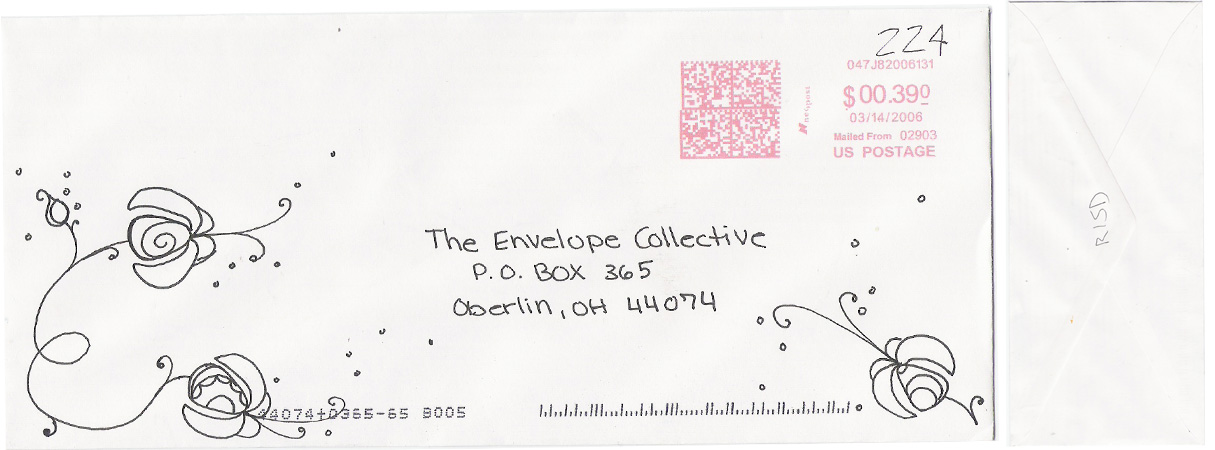 224
047J82006131
$00.390
03/14/2006
Mailed From 02903
US POSTAGE
The Envelope Collective
P.O. BOX 365
Oberlin, OH 44074
44074+0365-65 B005
RISD